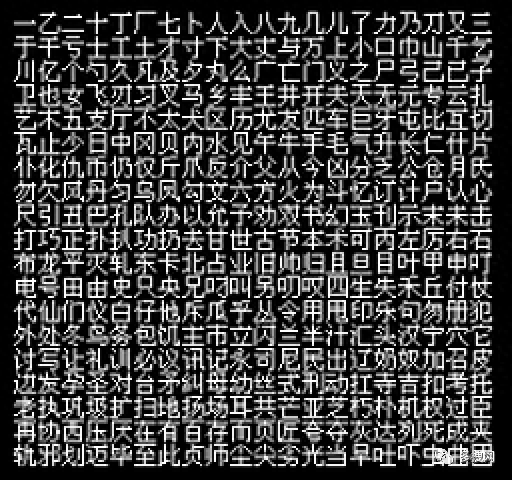 一乙二十丁厂七卜人入八九几儿了力乃刀又三
于干亏士工土才寸下大丈与万上小口巾山千乞
川亿个勺久凡及夕丸么广亡门义之尸弓己已子
卫也女飞刃习叉马乡丰王井开夫天无元专云扎
艺木五支厅不太犬区历尤友匹车巨牙屯比互切
瓦止少日中冈贝内水见午牛手毛气升长仁什片
仆化仇币仍仅斤爪反介父从今凶分乏公仓月氏
勿欠风丹匀乌凤勾文六方火为斗忆订计户认心
尺引丑巴孔队办以允予劝双书幻玉刊示末未击
打巧正扑扒功扔去甘世古节本术可丙左厉右石
布龙平灭轧东卡北占业旧帅归且旦目叶甲申叮
电号田由史只央兄叼叫另叨叹四生失禾丘付仗
代仙们仪白仔他斥瓜乎丛令用甩印乐句匆册犯
外处冬鸟务包饥主市立闪兰半汁汇头汉宁穴它
讨写让礼训必议讯记永司尼民出辽奶奴加召皮
边发孕圣对台矛纠母幼丝式刑动扛寺吉扣考托
老执巩圾扩扫地扬场耳共芒亚芝朽朴机权过臣
再协西压厌在有百存而页匠夸夺灰达列死成夹
轨邪划迈毕至此贞师尘尖劣光当早吐吓虫曲团